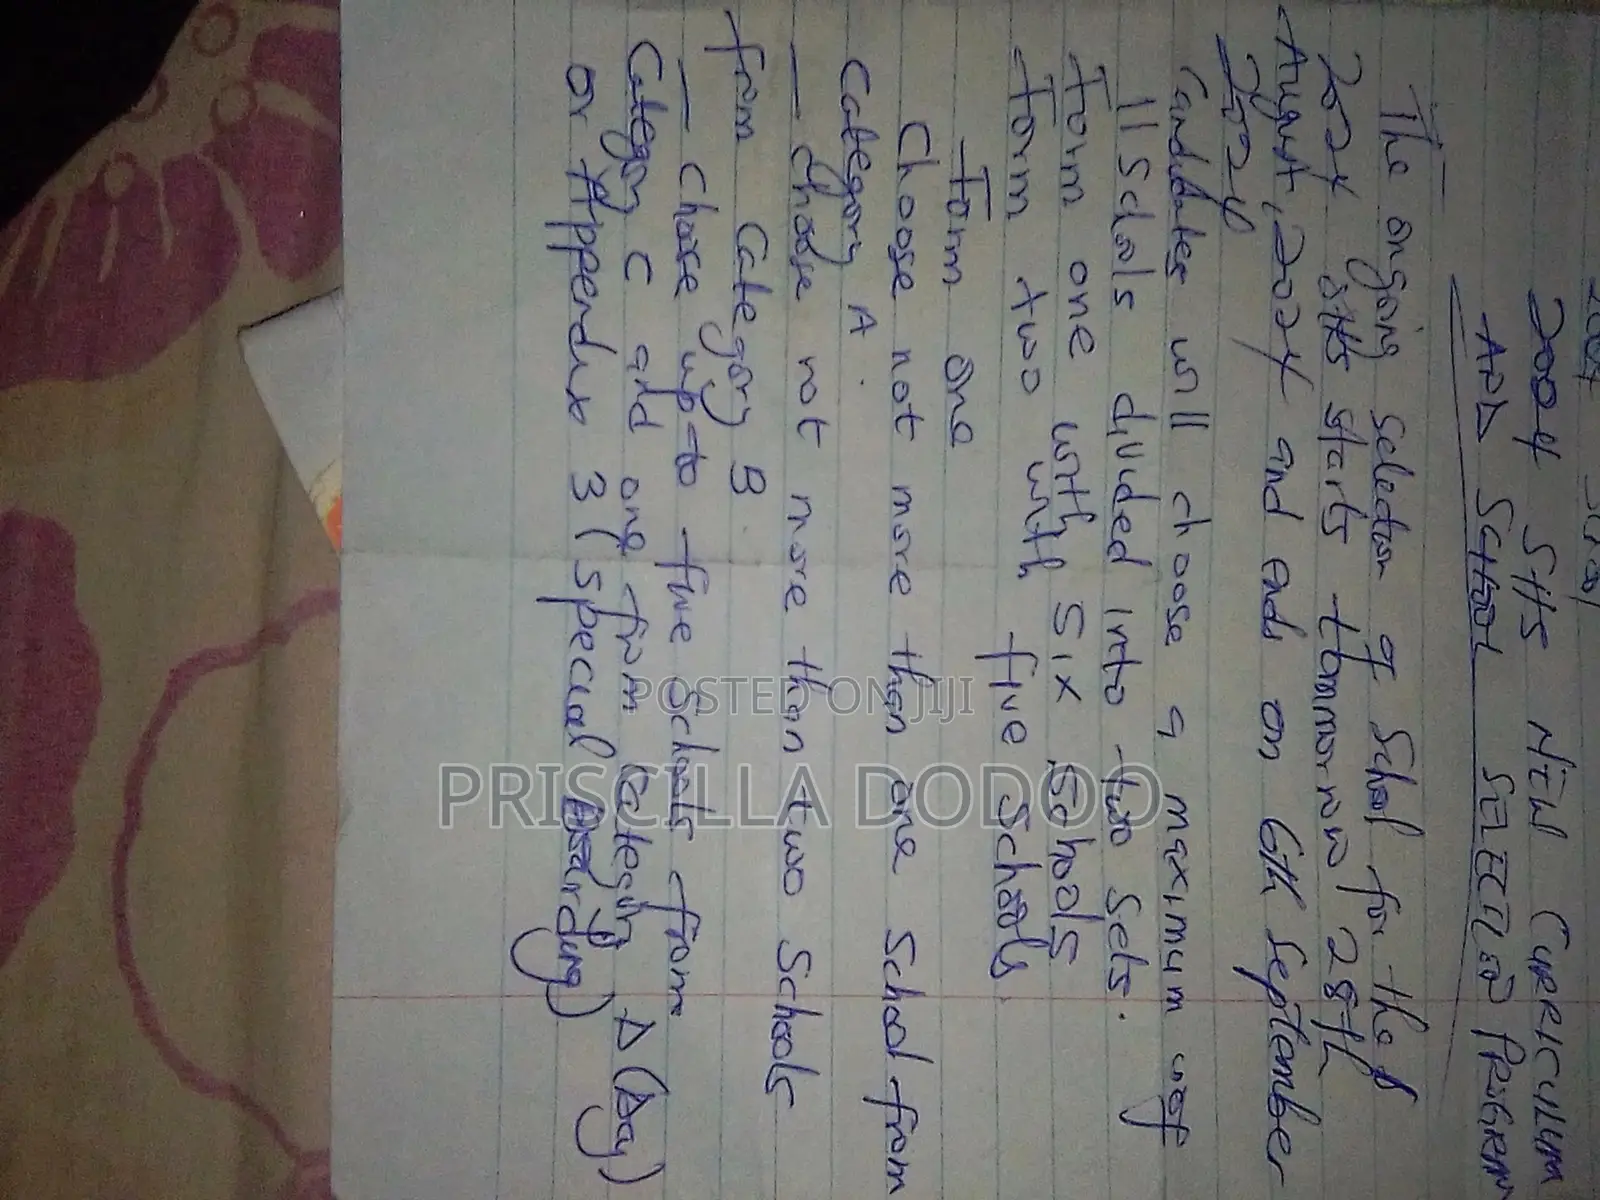 2024 SHS NEW CURRICULUM
AND SCHOOL SELECTION PROGRAM
The ongoing selection of School for the
2024 SHS starts tommorrow 28th
August, 2024 and ends on 6th September
2024
Candidates will choose a maximum of
11 Schools divided into two sets.
Form one with SIX Schools
Form two with five Schools.
Form one
Choose not more than one School from
Category A.
— Choose not more than two Schools
from Category B.
— Choose up to five Schools from
Category C and one from Category D (Day)
or Appendix 3 (Special Boarding)
POSTED ON JIJI
PRISCILLA DODOO